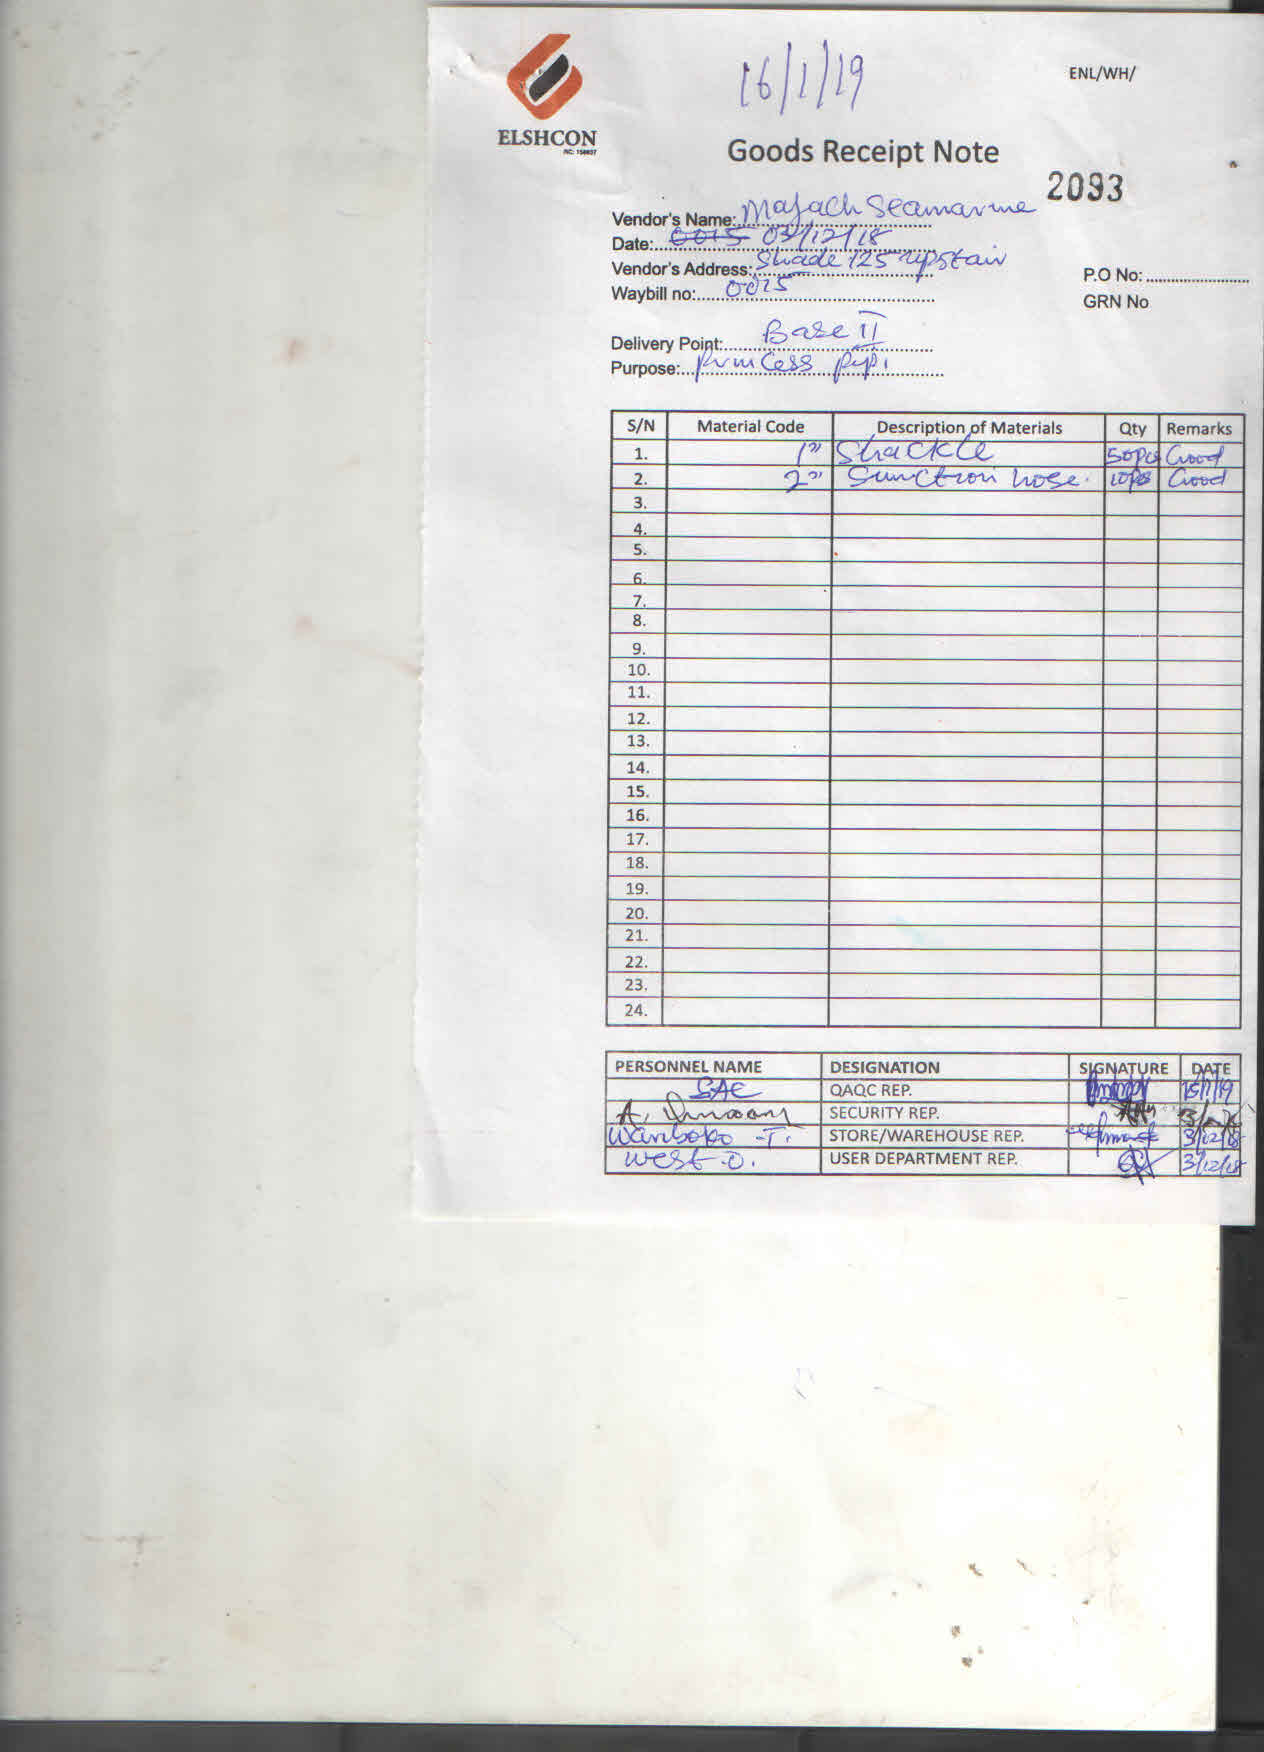 16/1/19
ENL/WH/
ELSHCON
RC: 156937
Goods Receipt Note
2093
Vendor's Name: Majach Seamarine
Date: 0015 03/12/18
Vendor's Address: Shade 125 upstair
Waybill no: 0015
P.O No:
GRN No
Delivery Point: Base II
Purpose: Princess pipi
S/N Material Code Description of Materials Qty Remarks
1. 1" Shackle 50pcs Good
2. 2" Sunction hose. 10pcs Good
3.
4.
5.
6.
7.
8.
9.
10.
11.
12.
13.
14.
15.
16.
17.
18.
19.
20.
21.
22.
23.
24.
PERSONNEL NAME DESIGNATION SIGNATURE DATE
QAQC REP. 15/1/19
A. SECURITY REP.
Wariboko T. STORE/WAREHOUSE REP. 3/12/18
West O. USER DEPARTMENT REP. 3/12/18